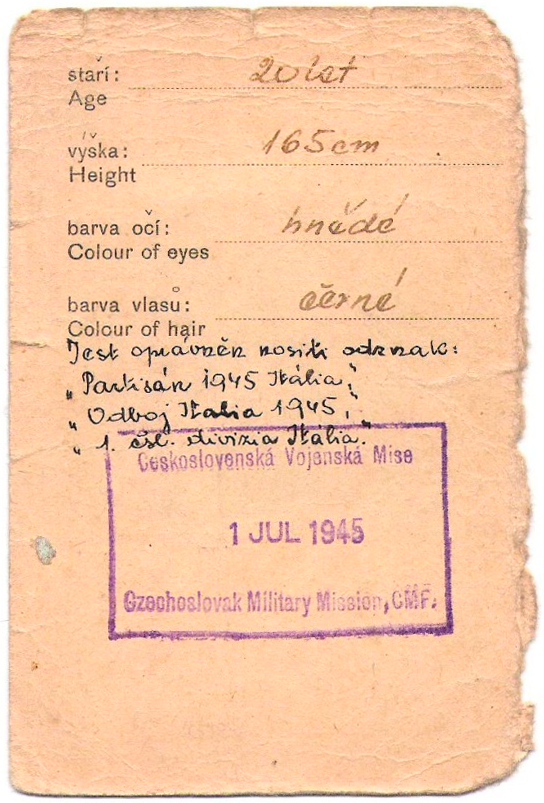 staří: 20 let
Age
výška: 165 cm
Height
barva očí: hnědé
Colour of eyes
barva vlasů: černé
Colour of hair
Jest oprávněn nositi odznak:
„Partisán 1945 Itália„
„Odboj Italia 1945„
„1. čsl. divizia Itália."
Československá Vojenská Mise
1 JUL 1945
Czechoslovak Military Mission, CMF.